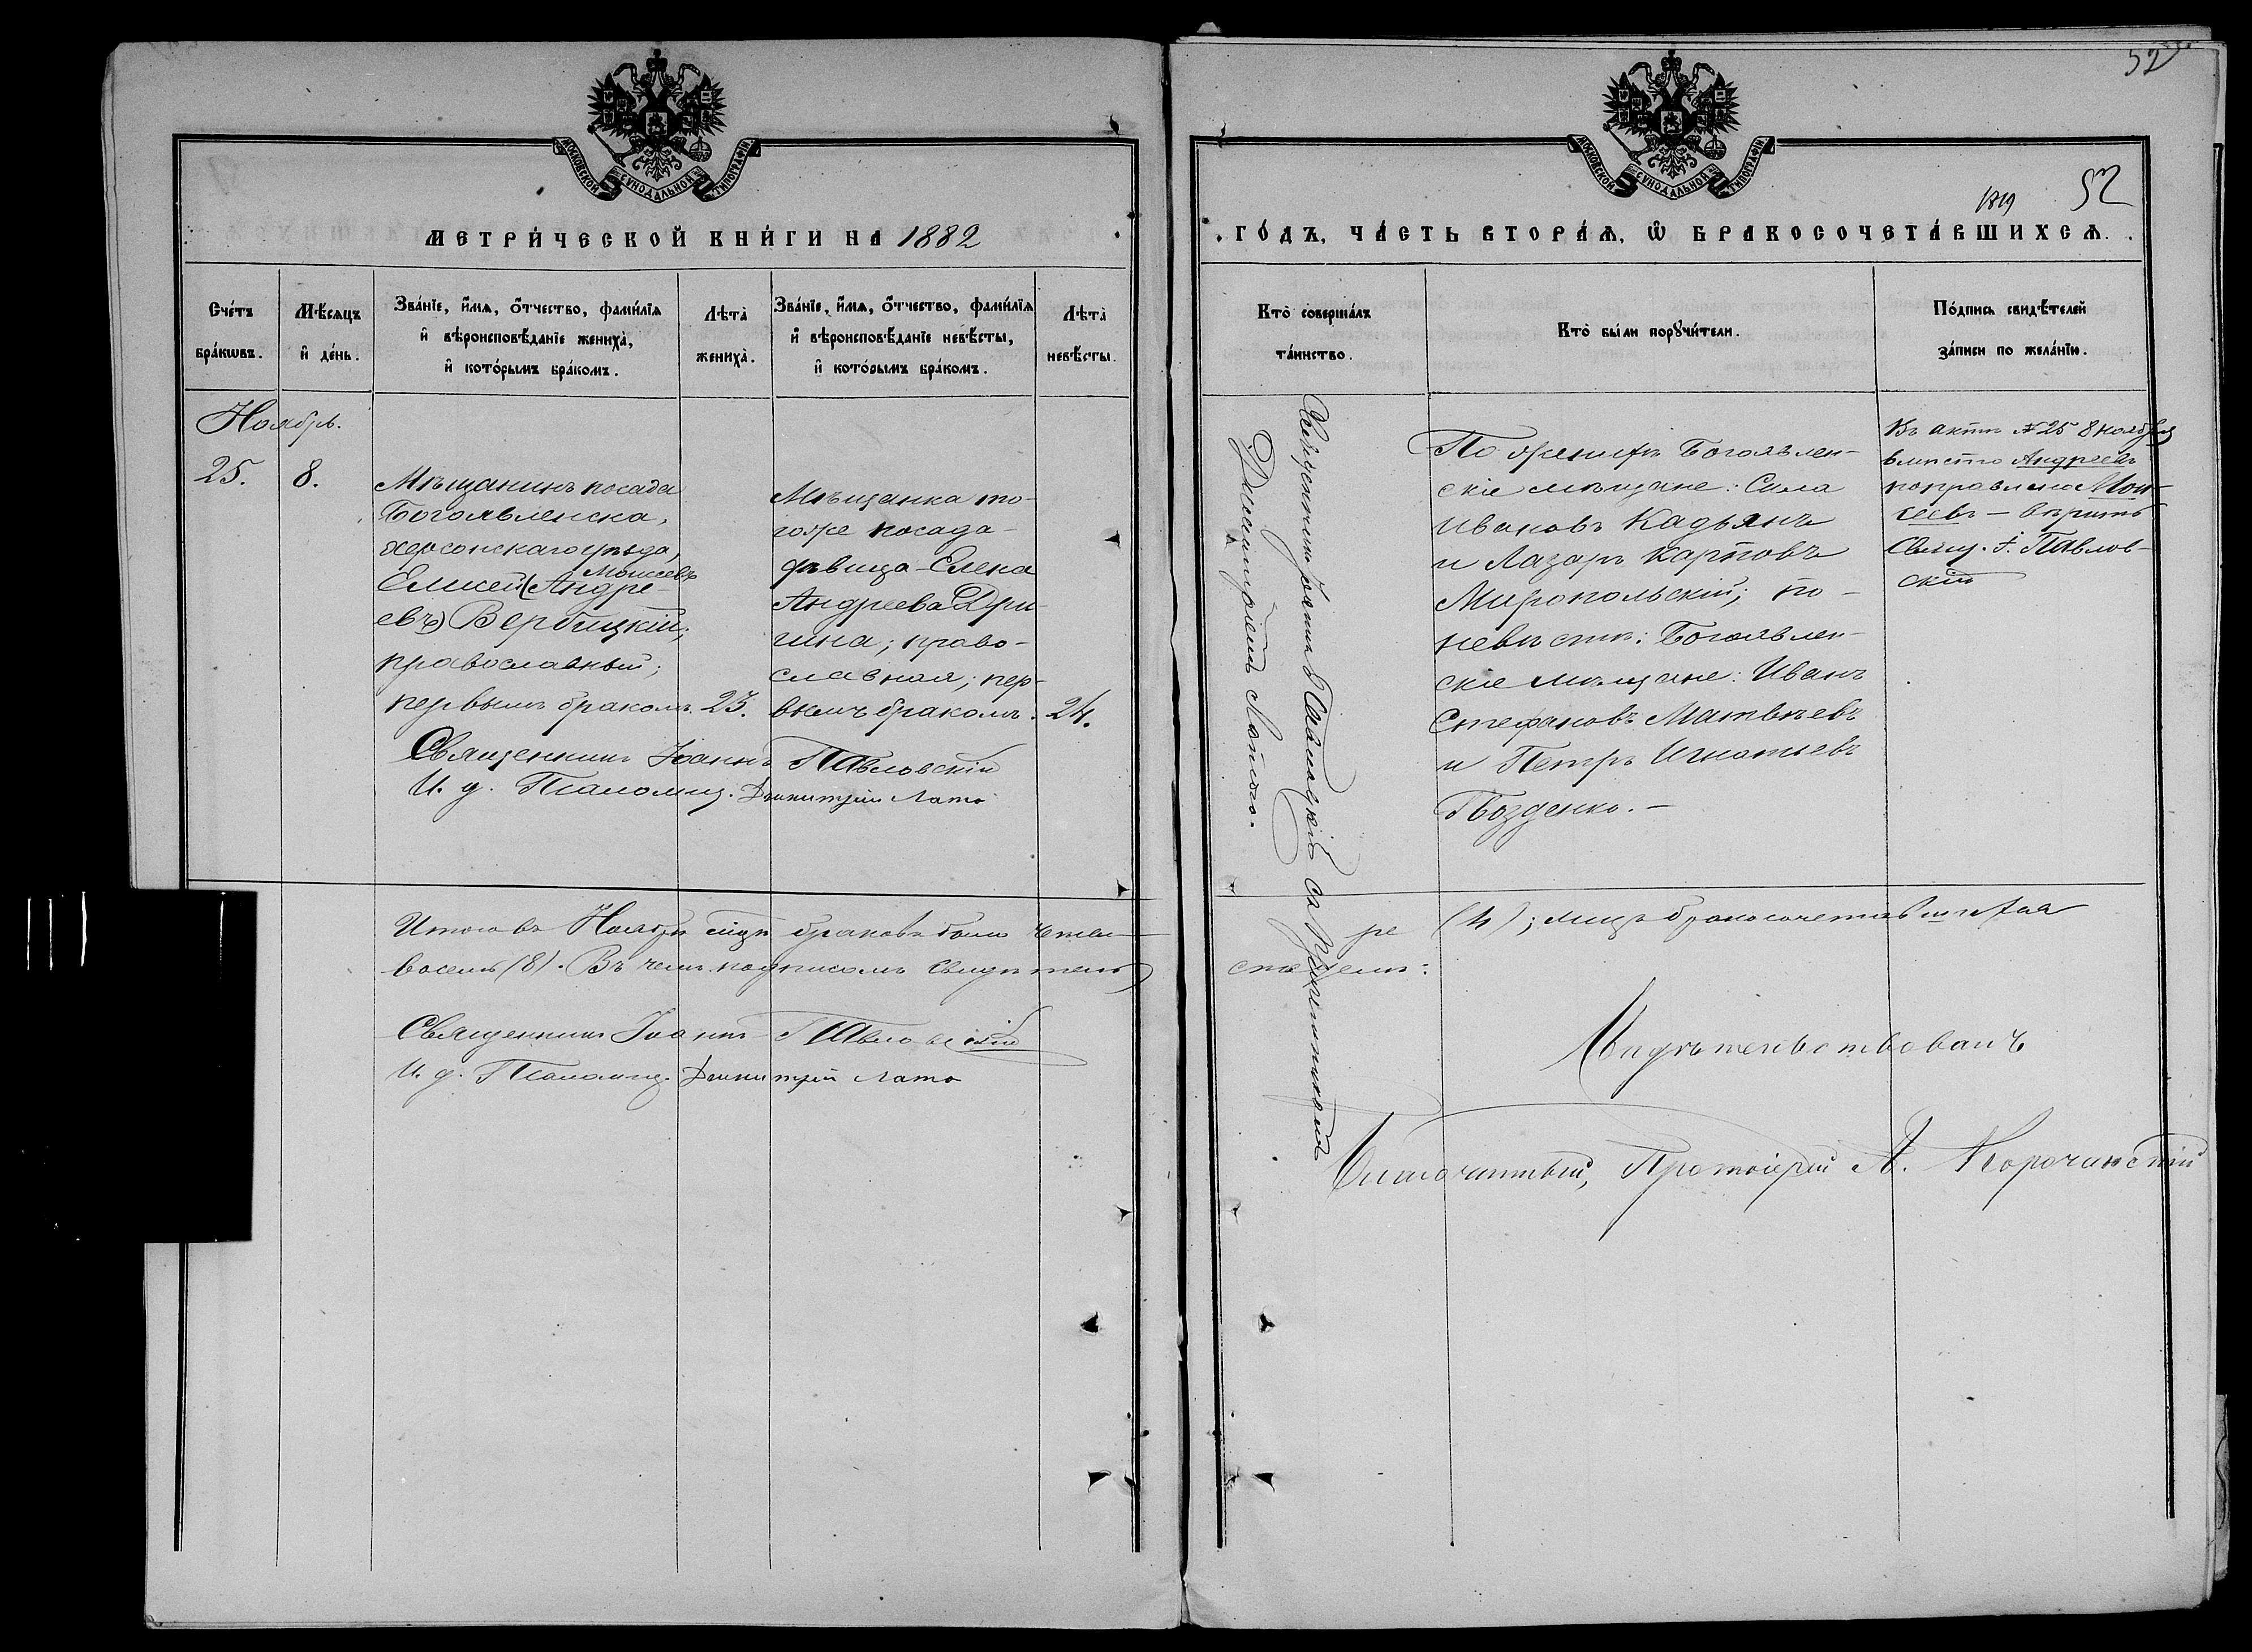 52
МОСКОВСКОЙ СѴНОДАЛЬНОЙ ТИПОГРАФІИ
МЕТРИ́ЧЕСКОЙ КНИ́ГИ НА 1882
Сче́тъ бра́кωвъ.
Мѣ́сяцъ и҆ де́нь.
Зва́нїе, и҆́мѧ, ѻ҆́тчество, фами́лїѧ
и҆ вѣроисповѣ́данїе жениха̀,
и҆ кото́рымъ бра́комъ.
Лѣта̀ жениха̀.
Зва́нїе, и҆́мѧ, ѻ҆́тчество, фами́лїѧ
и҆ вѣроисповѣ́данїе невѣ́сты,
и҆ кото́рымъ бра́комъ.
Лѣта̀ невѣ́сты.
Ноябрь.
25.
8.
Мѣщанинъ посада
Богоявленска,
херсонскаго уѣзда,
Моисеевъ
Елисей (Андре-
евъ) Вербицкій;
православный;
первымъ бракомъ.
23.
Мѣщанка то-
гоже посада
дѣвица Елена
Андреева Дри-
гина; право-
славная; пер-
вымъ бракомъ.
24.
Священникъ Іоаннъ Павловскій
И. д. Псаломщ. Димитрій Лато
Итого въ Ноябрѣ мцѣ браковъ было четы-
восемь (8). Въ чемъ подписомъ свидѣтель
Священникъ Іоаннъ Павловскій
И. д. Псаломщ. Димитрій Лато
МОСКОВСКОЙ СѴНОДАЛЬНОЙ ТИПОГРАФІИ
1819
52
ГО́ДЪ, ЧА́СТЬ ВТОРА́Ѧ, Ѽ БРАКОСОЧЕТА́ВШИХСѦ.
Кто̀ соверша́лъ
та́инство.
Кто̀ бы́ли порꙋчи́тели.
По́дпись свидѣ́телей
за́писи по жела́нїю.
Священникъ Іоаннъ Павловскій съ Псаломщикомъ
Димитріемъ Латою.
По женихѣ Богоявлен-
скіе мѣщане: Сила
Ивановъ Кадьянъ
и Лазарь Карповъ
Миропольскій; по
невѣстѣ: Богоявлен-
скіе мѣщане: Иванъ
Стефановъ Матвѣевъ
и Петръ Игнатьевъ
Гвозденко.
Въ актѣ № 25 8 ноября
вмѣсто Андреевъ
поправлено Мои-
сеевъ — вѣрить
Свящ. І. Павлов-
скій
ре (4); лицъ бракосочетавшихся
ствуемъ:
Свидѣтельствовалъ
Благочинный, Протоіерей А. Корочанскій